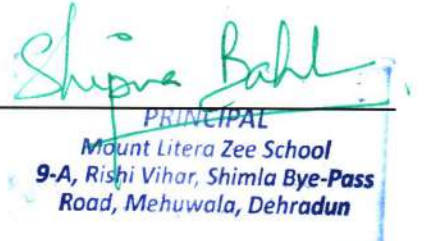 Shipra Bahl
PRINCIPAL
Mount Litera Zee School
9-A, Rishi Vihar, Shimla Bye-Pass
Road, Mehuwala, Dehradun